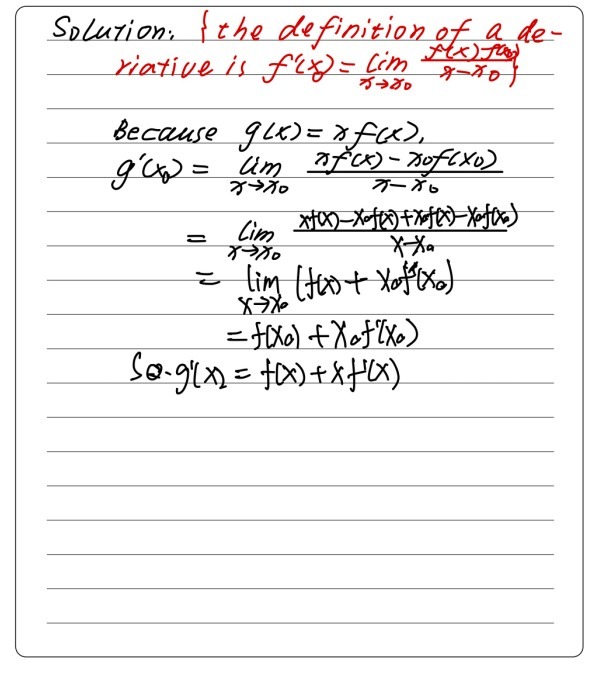 Solution: {the definition of a de-
riative is f'(x₀) = lim x→x₀ (f(x)-f(x₀))/(x-x₀)}
Because g(x) = xf(x),
g'(x₀) = lim x→x₀ (xf(x) - x₀f(x₀))/(x-x₀)
= lim x→x₀ (xf(x)-x₀f(x)+x₀f(x)-x₀f(x₀))/(x-x₀)
= lim x→x₀ (f(x) + x₀f'(x₀)
= f(x₀) + x₀f'(x₀)
So. g'(x) = f(x) + xf'(x)